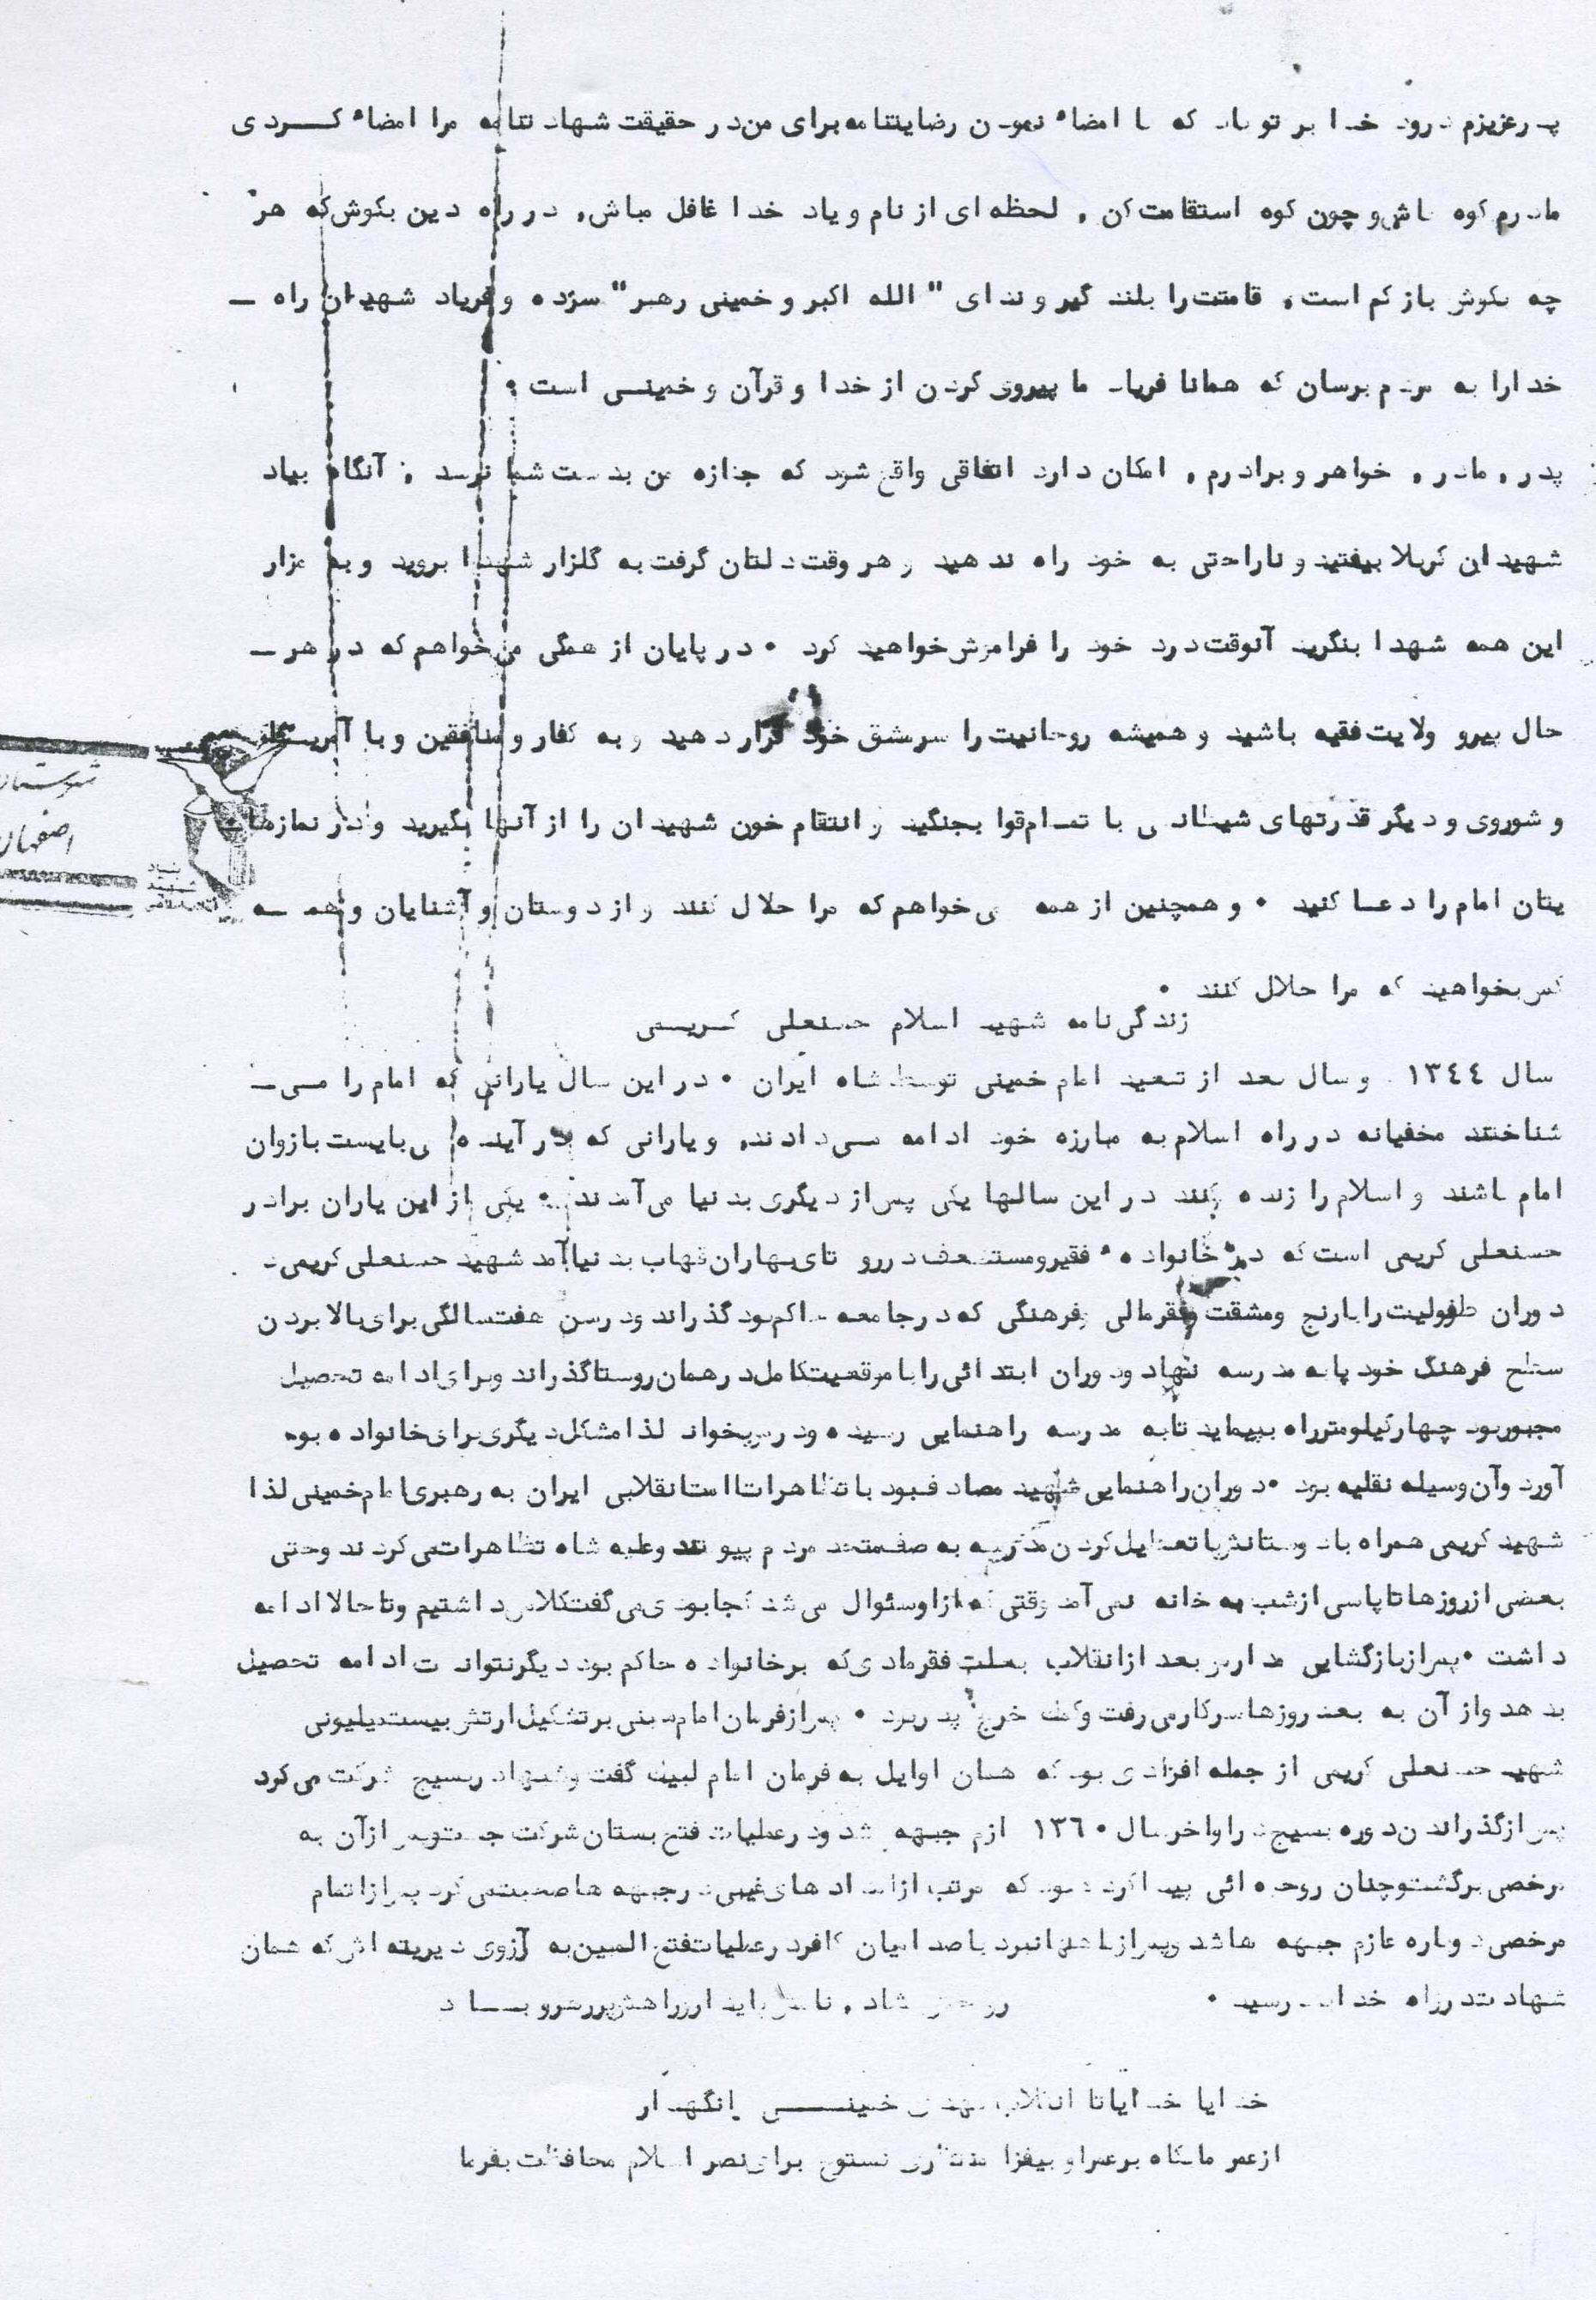 پدرعزیزم درود خدا بر تو باد که با امضاء نمودن رضایتنامه برای من در حقیقت شهادتنامه مرا امضاء کردی
مادرم کوه باش و چون کوه استقامت کن , لحظه ای از نام و یاد خدا غافل مباش, در راه دین بکوش که هر
چه بکوش باز کم است, قامتت را بلند گیر و ندای " الله اکبر و خمینی رهبر" سرده و فریاد شهیدان راه ـ
خدا را به مردم برسان که همانا فریاد ما پیروی کردن از خدا و قرآن و خمینی است .
پدر , مادر , خواهر و برادرم , امکان دارد اتفاقی واقع شود که جنازه من بدست شما نرسد , آنگاه بیاد
شهیدان کربلا بیفتید و ناراحتی به خود راه ندهید و هر وقت دلتان گرفت به گلزار شهدا بروید و به مزار
این همه شهدا بنگرید آنوقت درد خود را فراموش خواهید کرد . در پایان از همگی می خواهم که در هر ـ
حال پیرو ولایت فقیه باشید و همیشه روحانیت را سرمشق خود قرار دهید و به کفار و منافقین و با آمریکا
و شوروی و دیگر قدرتهای شیطانی با تمام قوا بجنگید و انتقام خون شهیدان را از آنها بگیرید و در نمازها
یتان امام را دعا کنید . و همچنین از همه می خواهم که مرا حلال کنند و از دوستان و آشنایان و همه
کس بخواهید که مرا حلال کنند .
زندگی نامه شهید اسلام حسنعلی کریمی
سال ۱۳٤٤ و سال بعد از تبعید امام خمینی توسط شاه ایران . در این سال یارانی که امام را می ـ
شناختند مخفیانه در راه اسلام به مبارزه خود ادامه می دادند, و یارانی که در آینده می بایست بازوان
امام باشند و اسلام را زنده کنند در این سالها یکی پس از دیگری بدنیا می آمدند . یکی از این یاران برادر
حسنعلی کریمی است که در خانواده فقیر و مستضعف در روستای بهاران قهاب بدنیا آمد شهید حسنعلی کریمی
دوران طفولیت را با رنج و مشقت و فقر مالی و فرهنگی که در جامعه حاکم بود گذراند و در سن هفت سالگی برای بالا بردن
سطح فرهنگ خود پا به مدرسه نهاد و دوران ابتدائی را با موقعیت کامل در همان روستا گذراند و برای ادامه تحصیل
مجبور بود چهار کیلومتر راه بپیماید تا به مدرسه راهنمایی رسیده و درس بخواند لذا مشکل دیگری برای خانواده بوجه
آورد و آن وسیله نقلیه بود . دوران راهنمایی شهید مصادف بود با تظاهرات امت انقلابی ایران به رهبری امام خمینی لذا
شهید کریمی همراه با دوستانش با تعطیل کردن مدرسه به صف متحد مردم پیوستند و علیه شاه تظاهرات می کردند و حتی
بعضی از روزها تا پاسی از شب به خانه نمی آمد وقتی که از او سئوال می شد کجا بودی می گفت کلاس داشتیم و تا حالا ادامه
داشت . پس از بازگشایی مدارس بعد از انقلاب بعلت فقر مادی که بر خانواده حاکم بود دیگر نتوانست ادامه تحصیل
بدهد و از آن به بعد روزها سر کار می رفت و کمک خرج پدر بود . پس از فرمان امام مبنی بر تشکیل ارتش بیست میلیونی
شهید حسنعلی کریمی از جمله افرادی بود که همان اوایل به فرمان امام لبیک گفت و در بسیج شرکت می کرد
پس از گذراندن دوره بسیج در اواخر سال ۱۳٦۰ عازم جبهه شد و در عملیات فتح بستان شرکت جست و پس از آن به
مرخصی برگشت و چنان روحیه ائی پیدا کرده بود که مرتب از امدادهای غیبی در جبهه ها صحبت می کرد پس از اتمام
مرخصی دوباره عازم جبهه ها شد و پس از ماهها نبرد با صدامیان کافر در عملیات فتح المبین به آرزوی دیرینه اش که همان
شهادت در راه خدا است رسید . روحش شاد , نامش پاینده و راهش پر رهرو باد
خدایا خدایا تا انقلاب مهدی خمینی را نگهدار
از عمر ما بکاه بر عمر او بیفزا منتظری نستوه برای نصر اسلام محافظت بفرما
اصفهان